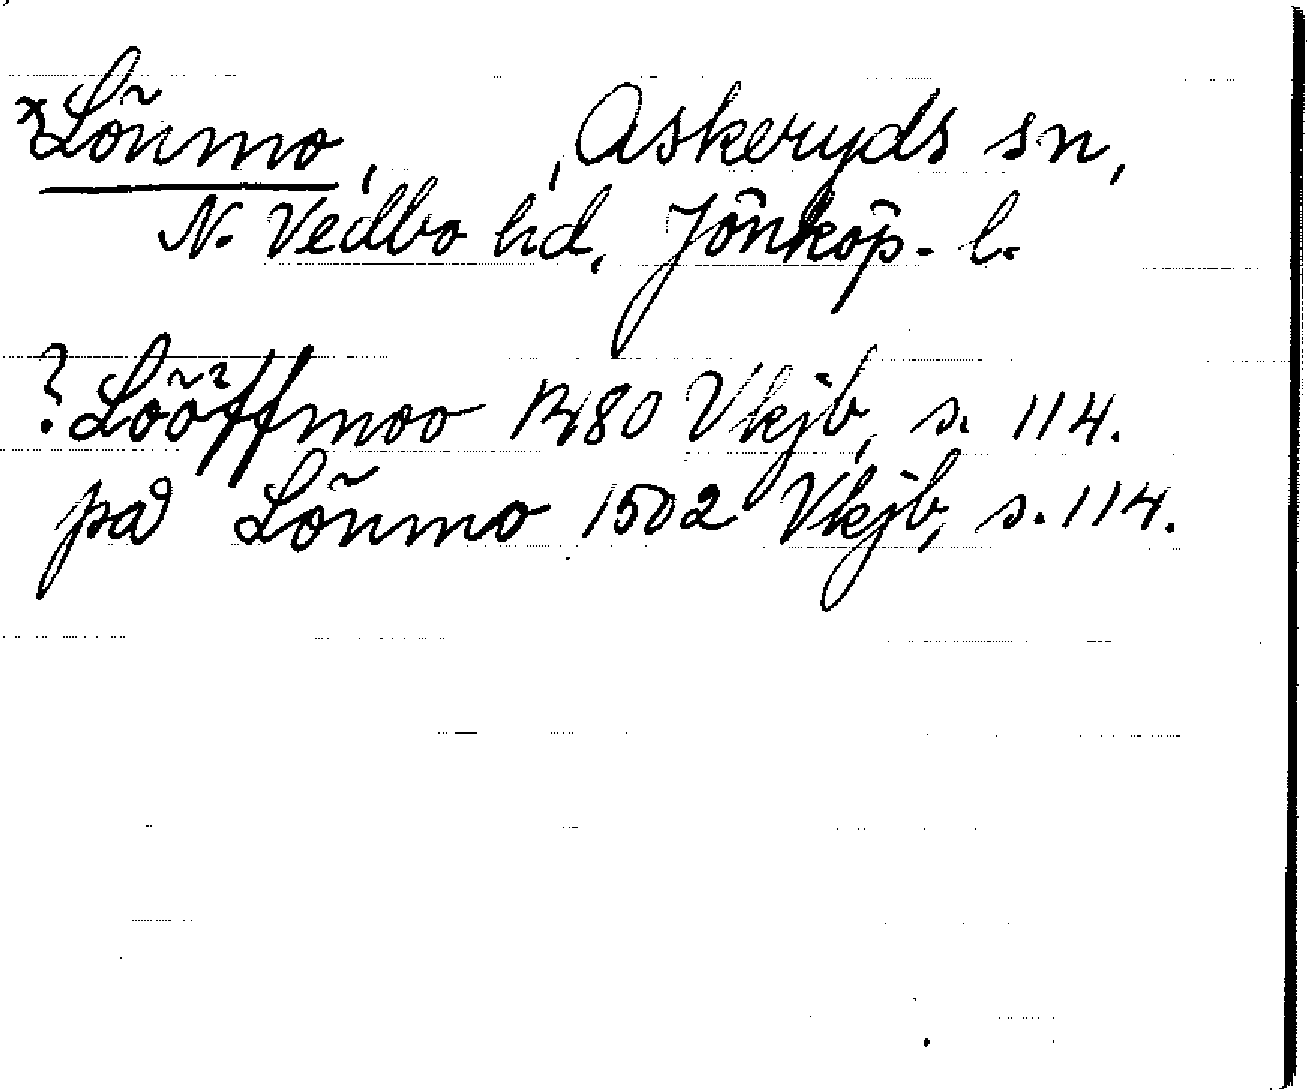 *Lönmo, , Askeryds sn,
N. Vedbo hd, Jönköp. l.
? Lööffmoo 1480 Vkjb, s. 114.
på Lönmo 1502 Vkjb, s. 114.